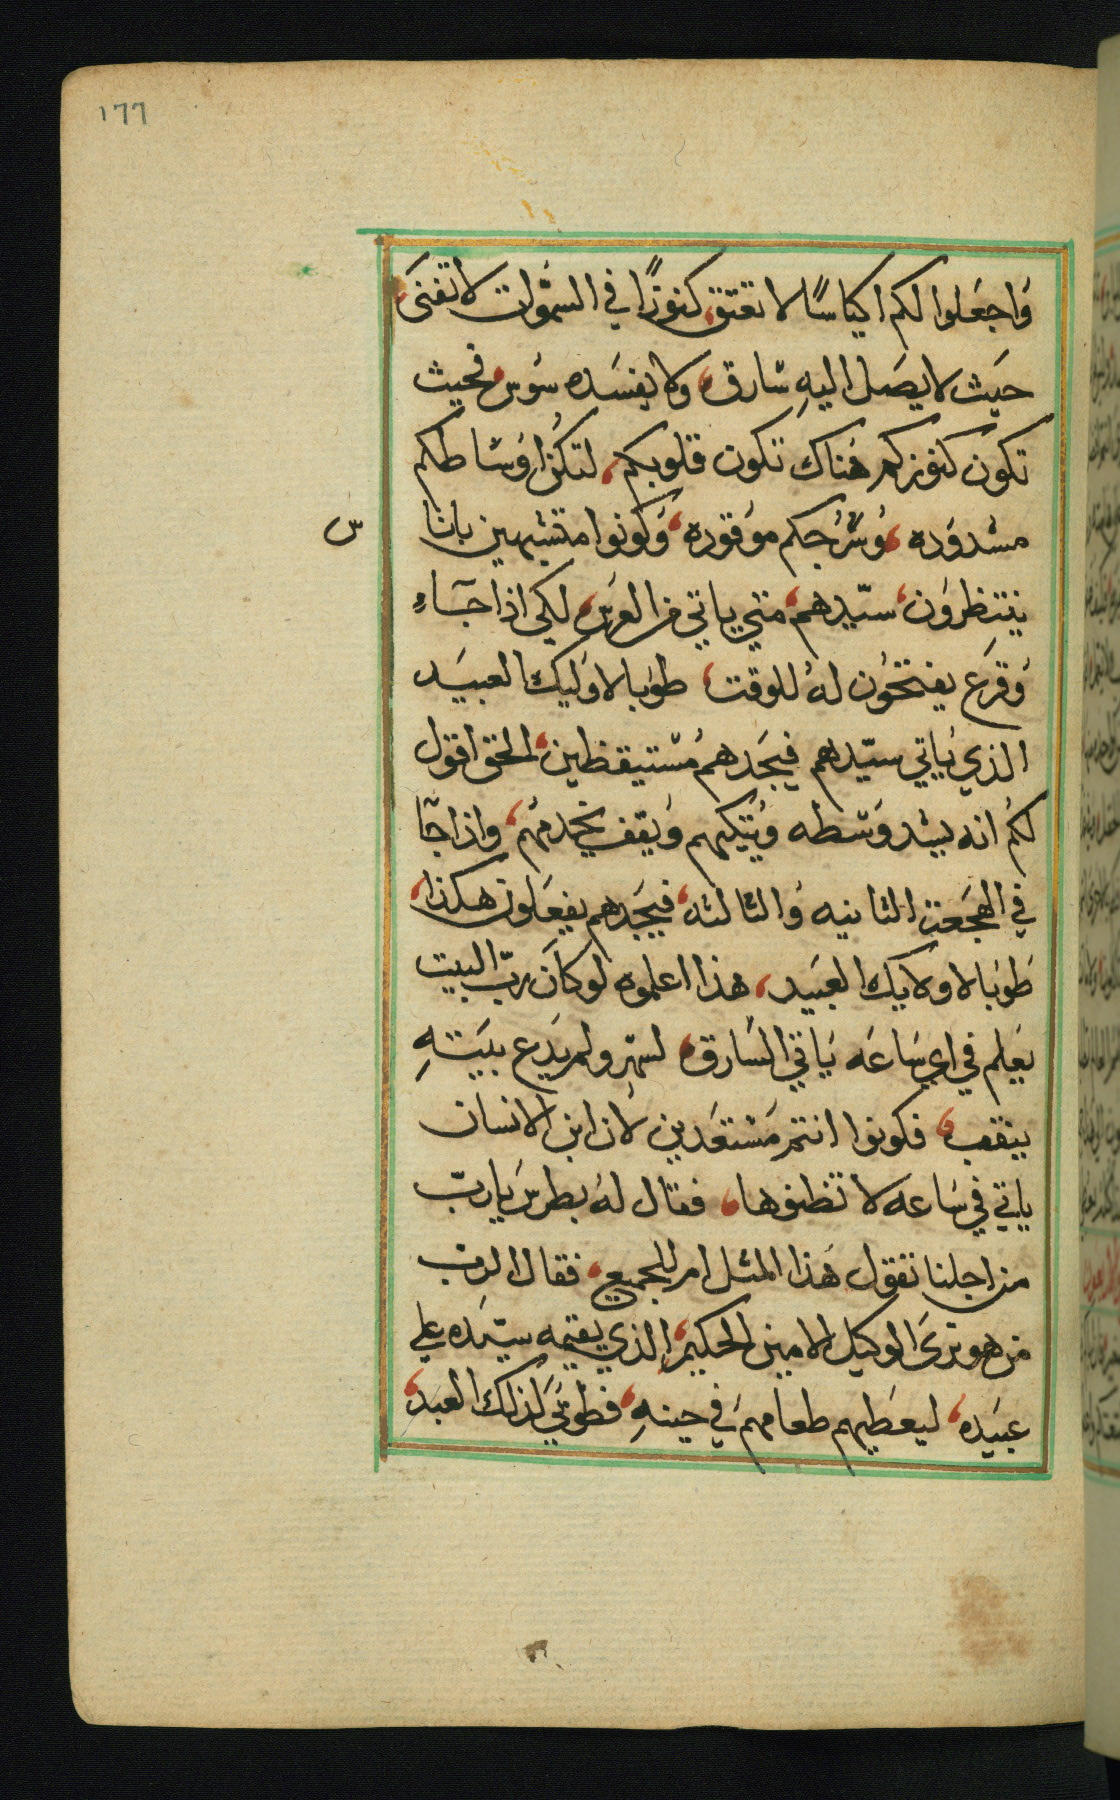 ١٦٦
وَاجعَلوا لكم اكياسًا لا تعتق كنوزًا في السمَوات لا تفنىَ
حيَث لا يصَل اليهِ سَارق، ولا يفسَده سَوس فحيث
تكون كنوزكم هَناك تكون قلوبكم، لتكن اوسَاطكم
مشدوَده، وُسُرُجكم موَقوده، وَكونوا متشبهين باناس
ينتظروَن، سيّدهم، متي ياتي من العرس، لكى اذا جَاءِ
وُقرَع يفتحُون لهُ للوقت، طوَبا لاوَليك العبيَد
الذي يَاتي سيّدهم فيجَدهم مُستيقظين، الحق اقول
لكمُ انه يشد وَسَطه وَيتكيهم وَيقف يخدمهُم، واذا جآ
في الهجَعة الثانيه وُالثالثه، فيجَدهم يفعَلون هكذا،
طَوبا لاولايك العَبيد، هذا اعلموه لو كانَ ربّ البيت
يعَلم في اي سَاعَه يَاتي السَارق، لسهر ولم يَدع بيَتهِ
ينقب، فكونوا انتم مَستعَدين لان ابن الانسان
ياتي في سَاعه لا تظنوها، فقال لهُ بطرسَ يا ربّ
من اجلنا تقول هَذا المثل ام للجميع، فقال الرب
من هو ترىَ الوكيل الامين الحكيم، الذي يقيمه سيّده علي
عبيَده، ليعَطيهم طعَامهمَ في حينهِ، فطوبيَ لذلك العبَد،